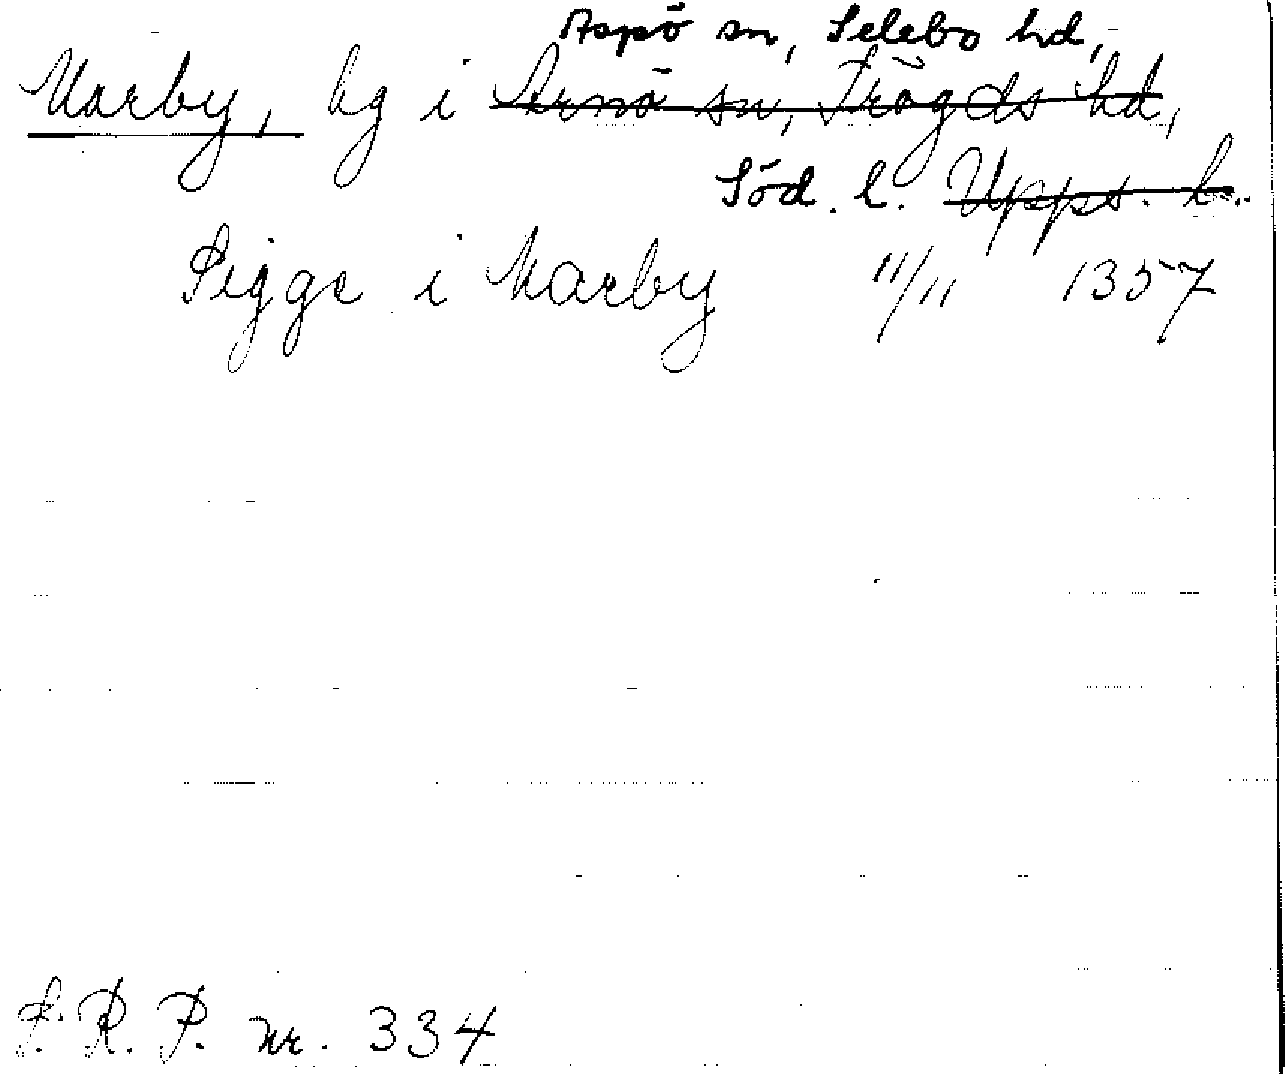 Aspö sn, Selebo hd,
Marby, by i Arnö sn, Trögds hd,
Söd. l. Upps. l.
Sigge i Marby 11/11 1357
S. R. P. nr. 334